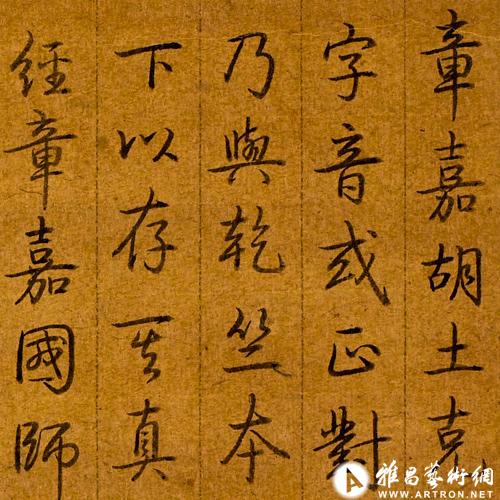 章嘉胡土克
字音或正對
乃與乾竺本
下以存其真
經章嘉國師
雅昌藝術網
WWW.ARTRON.NET